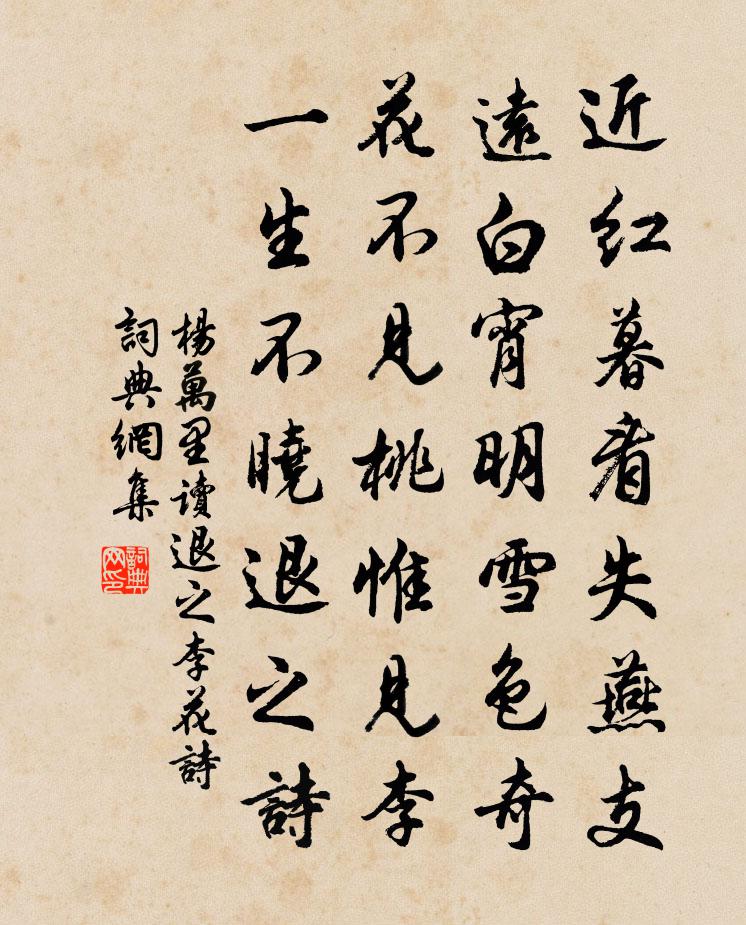 近红暮看失燕支
遠白宵明雪色奇
花不見桃惟見李
一生不曉退之詩
楊萬里讀退之李花詩
詞典網集
詞典網印